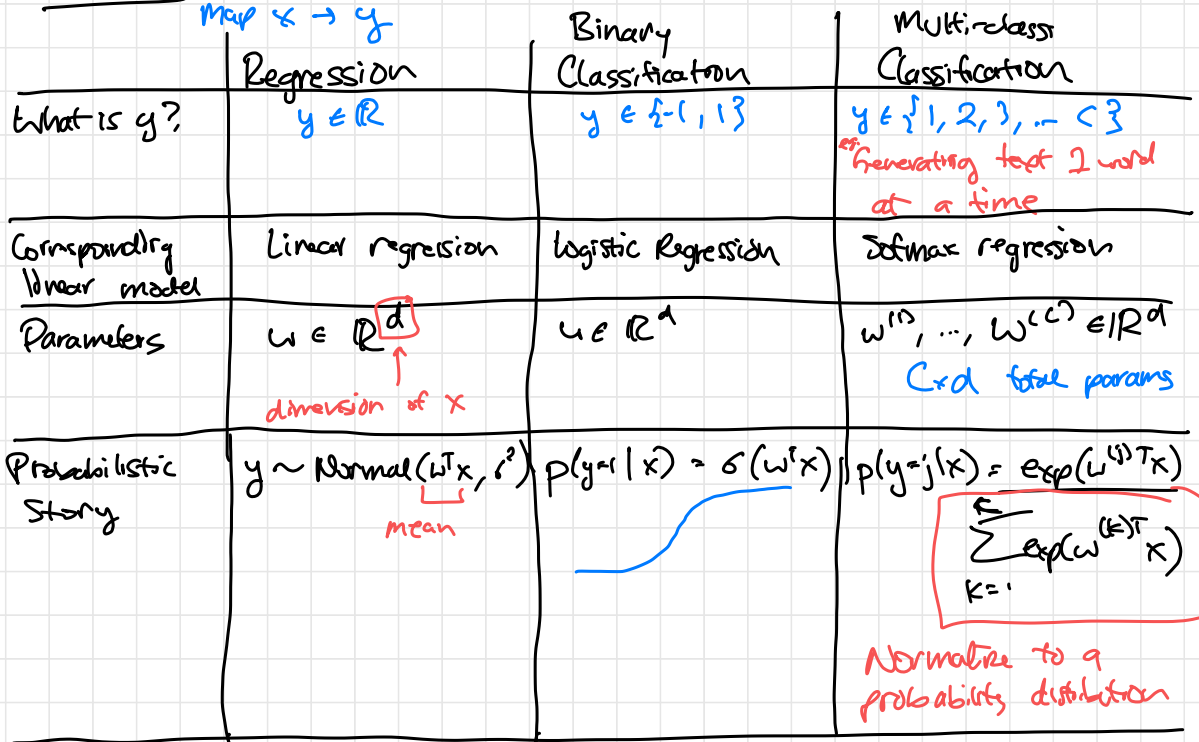 Map x → y
Regression
Binary
Classification
Multi-class
Classification
What is y?
y ∈ ℝ
y ∈ {-1, 1}
y ∈ {1, 2, 3, ... C}
eg. Generating text 1 word
at a time
Corresponding
linear model
Linear regression
Logistic Regression
Softmax regression
Parameters
w ∈ ℝ^d
dimension of x
w ∈ ℝ^d
w^(1), ..., w^(C) ∈ ℝ^d
C×d total params
Probabilistic
Story
y ~ Normal(w^T x, σ²)
mean
p(y=1|x) = σ(w^T x)
p(y=j|x) = exp(w^(j)T x)
C
∑ exp(w^(k)T x)
k=1
Normalize to a
probability distribution